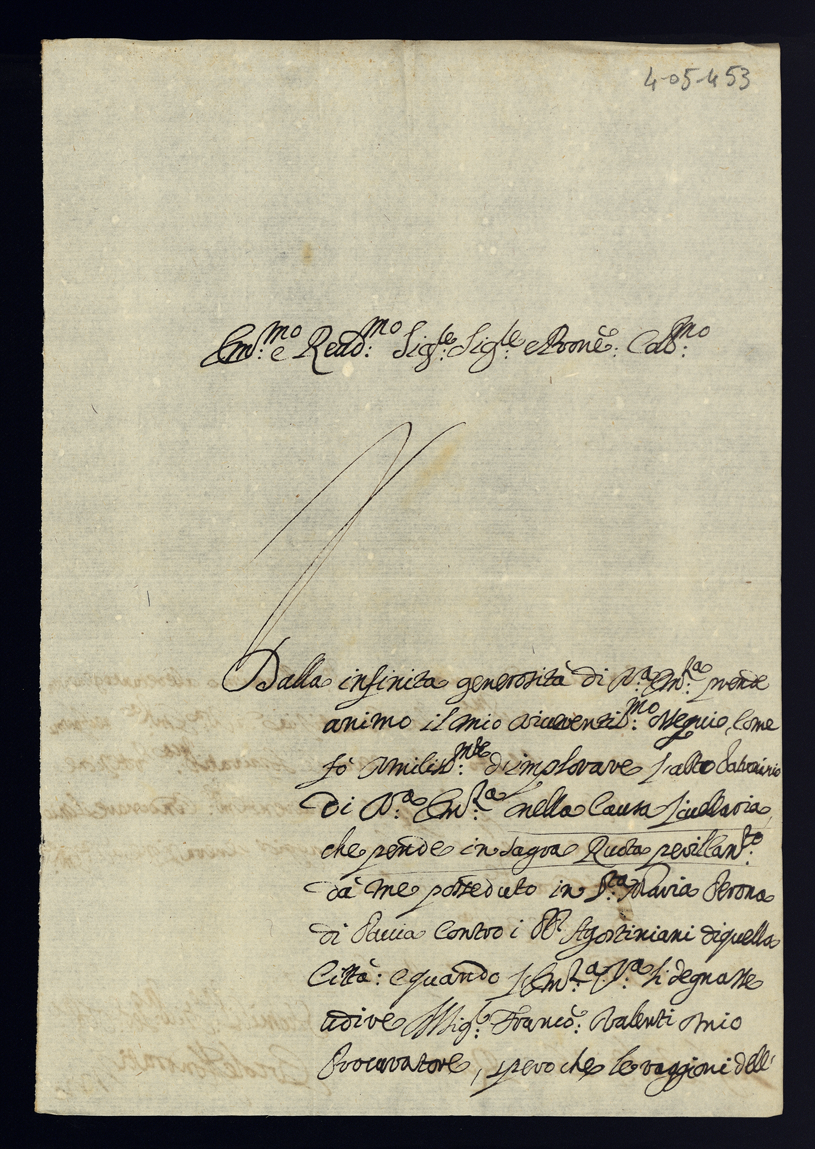 4-05-453
Em.mo e Reud.mo Sig.re Sig.re e Prone: Coll.mo
Dalla infinita generosità di V.a Em.za prende
animo il mio riuerentiss.mo ossequio, come
fò umiliss.mte d'implorare l'alto Patrocinio
di V.a Em.za nella Causa
che pende in Sagra Ruota
dà me posseduto in S.ta Maria Perona
di Pauia contro i PP. Agostiniani di quella
Città: e quando l'Em.za V.a si degnasse
udire Il Sig.r Franco: Valenti mio
Procuratore, spero che le raggioni dell'